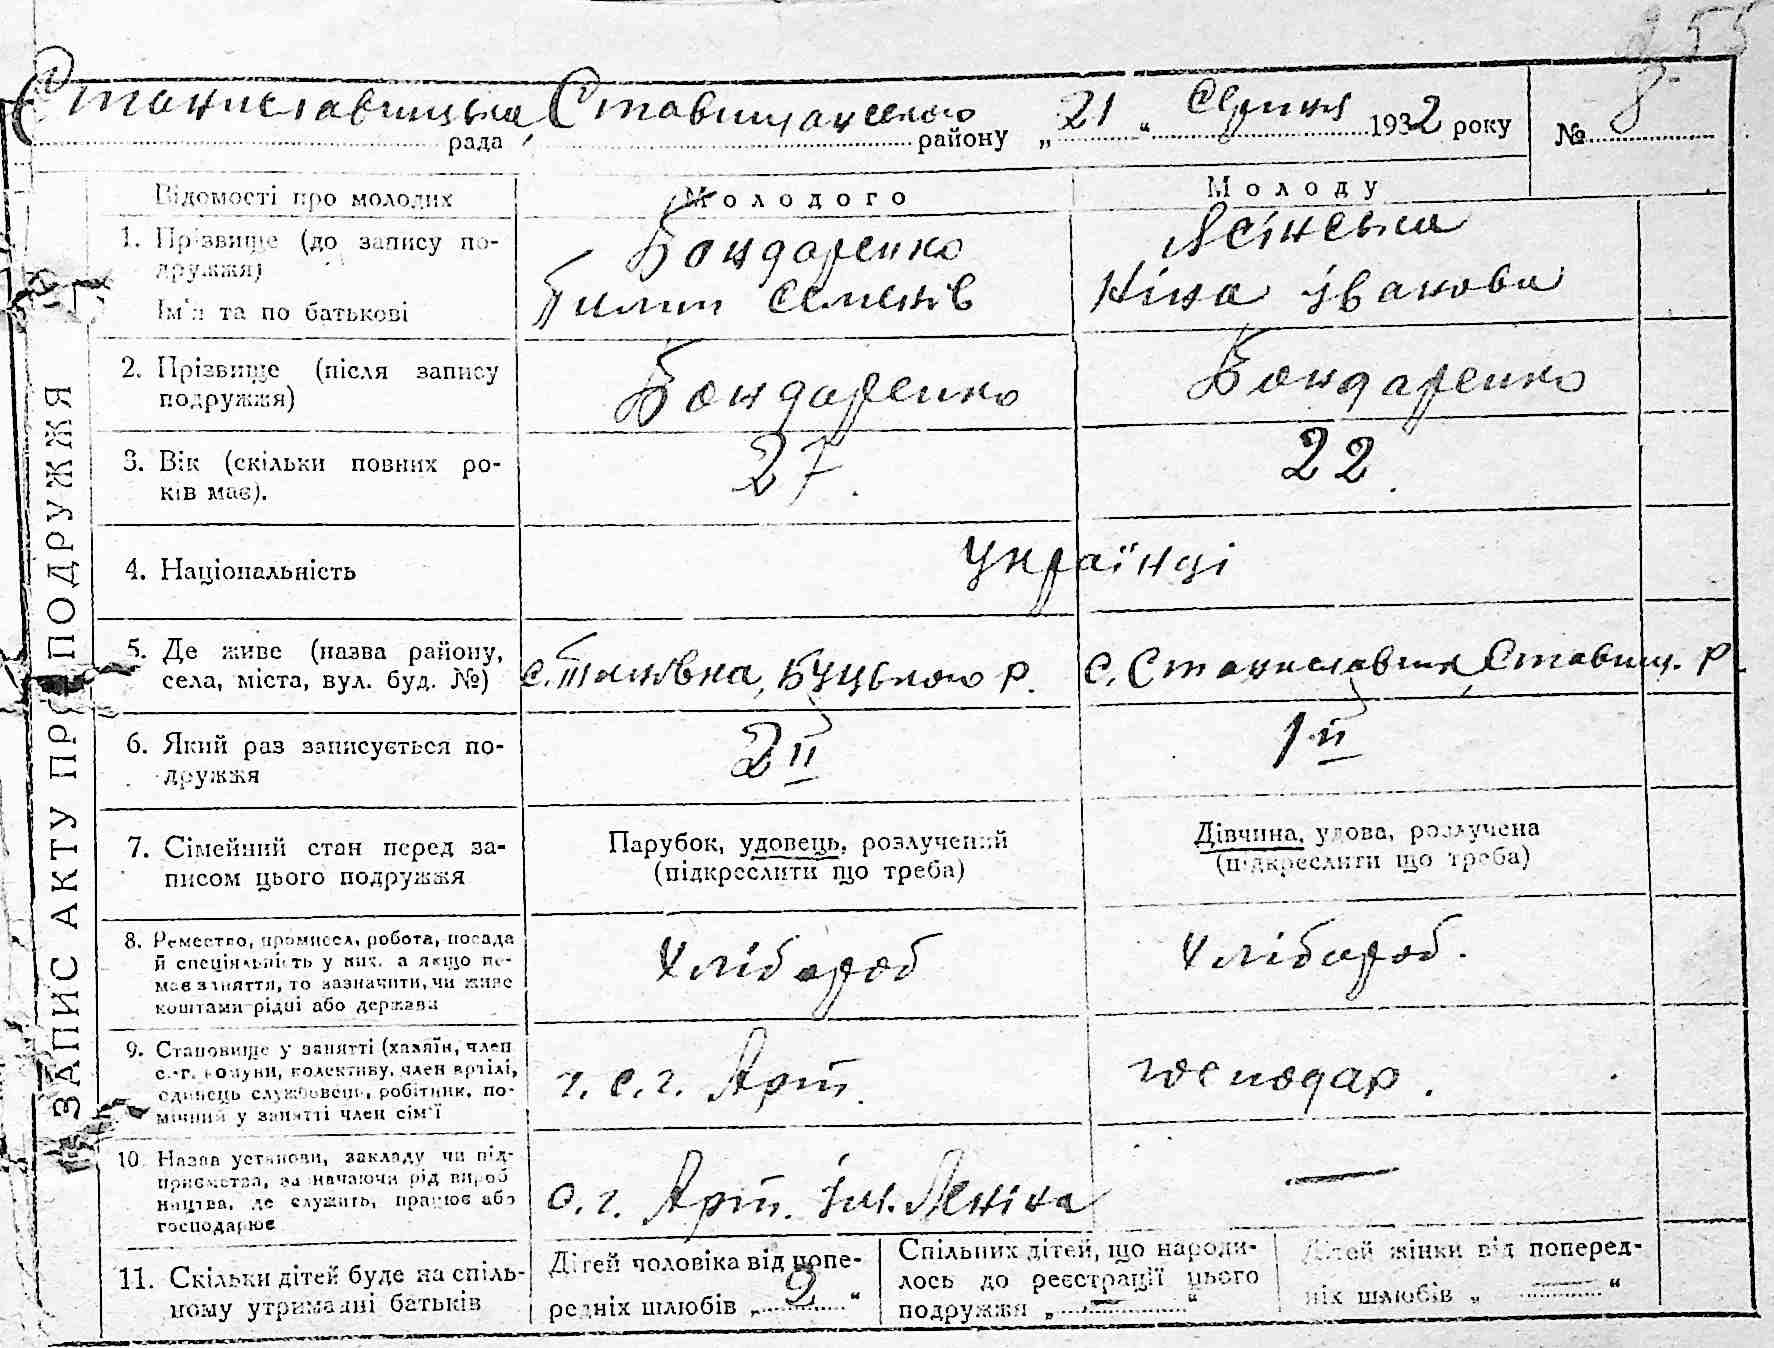 255
Станиславицька рада, Ставищанського району „21“ Серпня 1932 року № 8
ЗАПИС АКТУ ПРО ПОДРУЖЖЯ
Відомості про молодих
Молодого
Молоду
1. Прізвище (до запису по-
дружжя)
Ім'я та по батькові
Бондаренко
Пилип Семенів
Ясінська
Ніна Іванова
2. Прізвище (після запису
подружжя)
Бондаренко
Бондаренко
3. Вік (скільки повних ро-
ків має).
27.
22.
4. Національність
Українці
5. Де живе (назва району,
села, міста, вул. буд. №)
с. Буцького р.
с. Станиславчик, Ставищ. р.
6. Який раз записується по-
дружжя
2й
1й
7. Сімейний стан перед за-
писом цього подружжя
Парубок, удовець, розлучений
(підкреслити що треба)
Дівчина, удова, розлучена
(підкреслити що треба)
8. Ремество, промисел, робота, посада
й спеціяльність у них, а якщо не-
має заняття, то зазначити, чи живе
коштами рідні або держави
Хлібороб
Хлібороб.
9. Становище у занятті (хазяїн, член
с.-г. комуни, колективу, член артілі,
одинець службовець, робітник, по-
мічний у занятті член сім'ї
ч. с. г. Арт.
господар.
10. Назва установи, закладу чи під-
приємства, зазначаючи рід вироб
ництва, де служить, працює або
господарює
с. г. Арт. ім. Леніна
—
11. Скільки дітей буде на спіль-
ному утриманні батьків
Дітей чоловіка від попе-
редніх шлюбів „ 2 “
Спільних дітей, що народи-
лось до реєстрації цього
подружжя „ — “
Дітей жінки від поперед-
ніх шлюбів „ — “